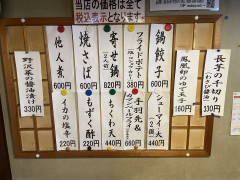 当店の価格は全て
税込表示となります。
長芋の千切り
(わさび醤油)
330円
鳳凰卵のゆで玉子
160円
鍋餃子
600円
シューマイ
2個
440円
フライドポテト
380円
手羽先&
600円
寄せ鍋
(二人前)
ちくわ天
440円
焼さば
600円
もずく酢
220円
他人煮
600円
イカの塩辛
220円
野沢菜の醤油漬け
330円